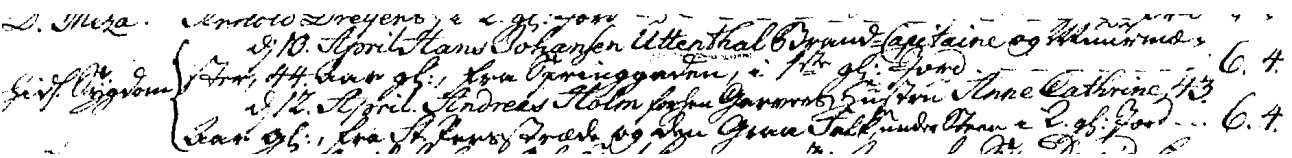 D. Meza. Arnold Dreyens, i 2. gl: Jord
d. 10. April Hans Johansen Uttenthal Brand-Capitaine og Muurme-
hids. Sÿgdom ster, 44 aar gl:, fra Springgaden, i 1ste gl: Jord 6. 4.
d. 12. April. Andreas Holm forhen Garvers Hustru Anne Cathrine, 43
Aar gl:, fra St. Pers Stræde og den Graa Falk, under Steen i 2. gl: Jord 6. 4.